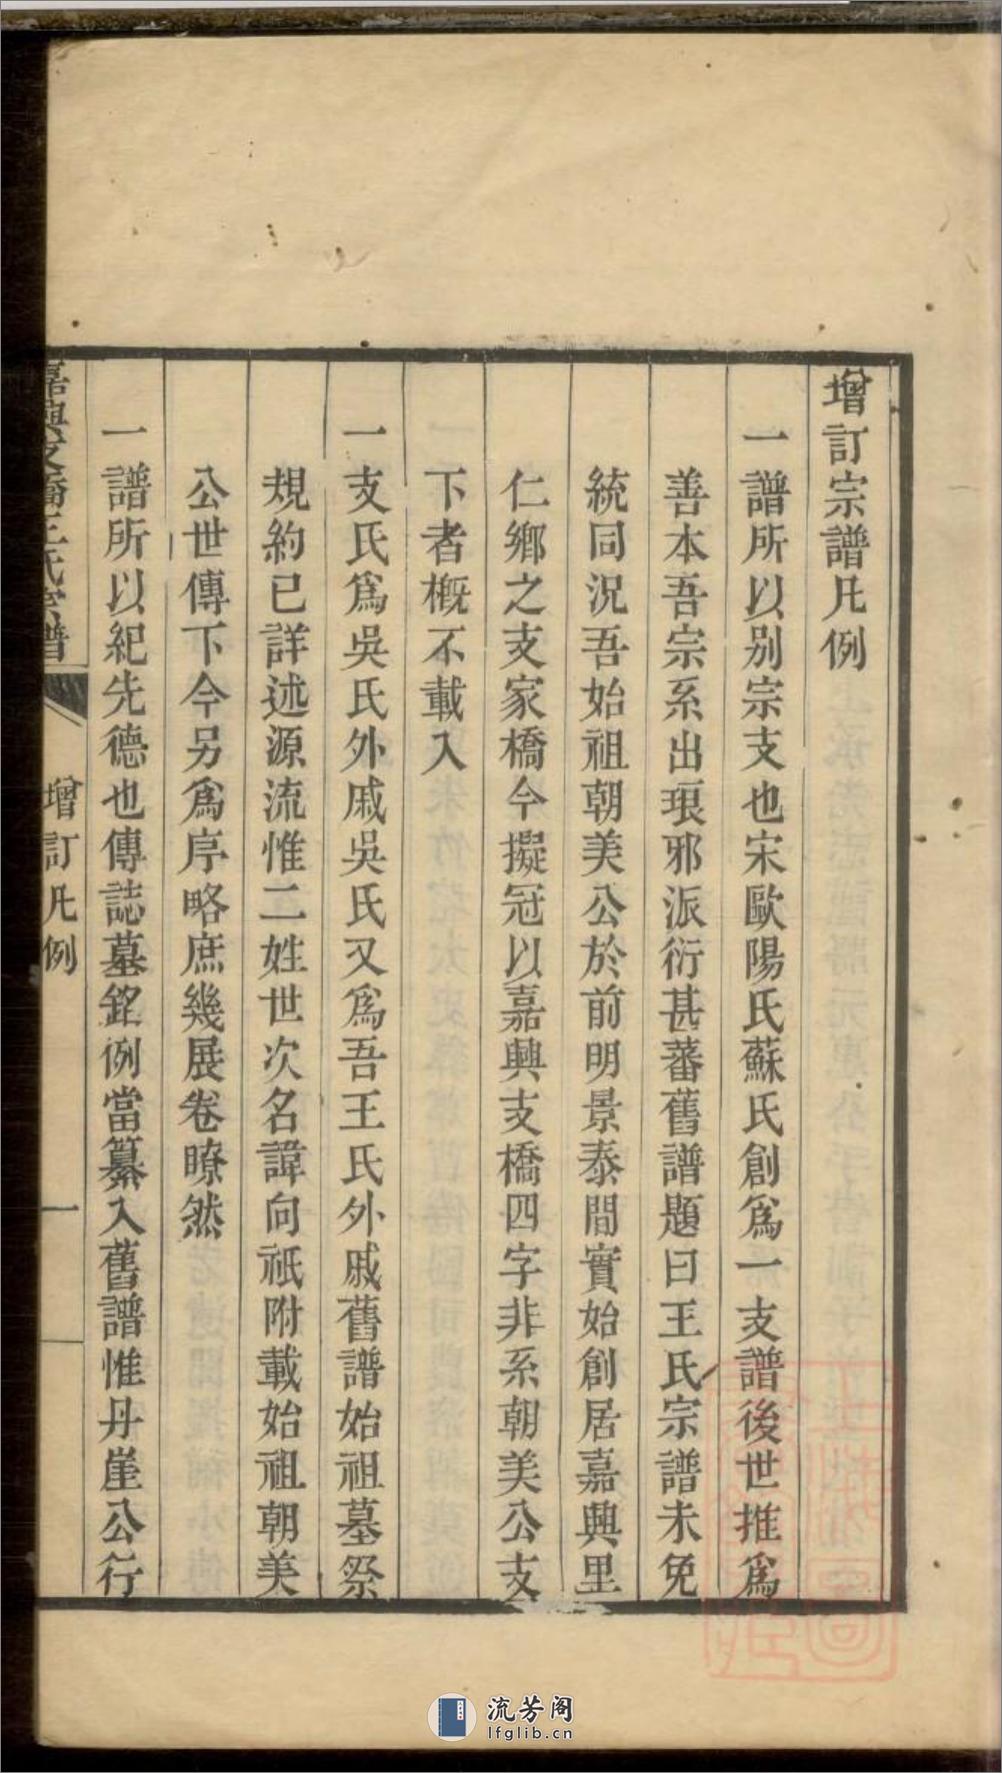 增訂宗譜凡例
一譜所以别宗支也宋歐陽氏蘇氏創爲一支譜後世推爲
善本吾宗系出琅邪派衍甚蕃舊譜題曰王氏宗譜未免
統同況吾始祖朝美公於前明景泰間實始創居嘉興里
仁鄉之支家橋今擬冠以嘉興支橋四字非系朝美公支
下者概不載入
一支氏爲吳氏外戚吳氏又爲吾王氏外戚舊譜始祖墓祭
規約已詳述源流惟二姓世次名諱向祇附載始祖朝美
公世傳下今另爲序略庶幾展卷暸然
一譜所以紀先德也傳誌墓銘例當纂入舊譜惟丹崖公行
王氏宗譜
增訂凡例
一
流芳阁
lfglib.cn